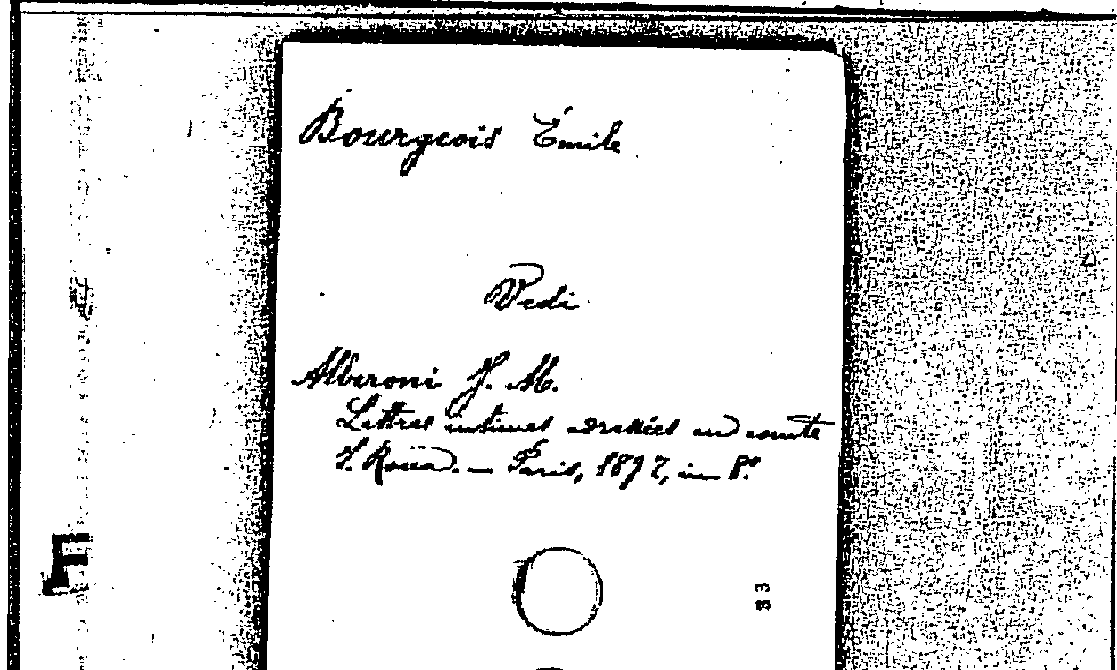 Bourgeois Émile
Vedi
Alberoni J. M.
Lettres intimes adressées au comte
I. Rocca. — Paris, 1892, in 8.°
33